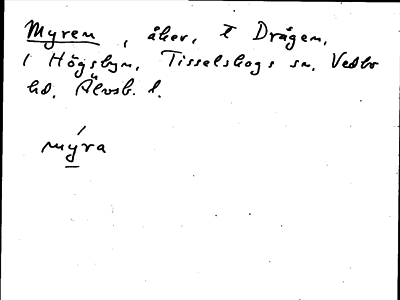 Myren, åker, t Drågen,
i Högsbyn, Tisselskogs sn, Vedbo
hd, Älvsb. l.
mýra